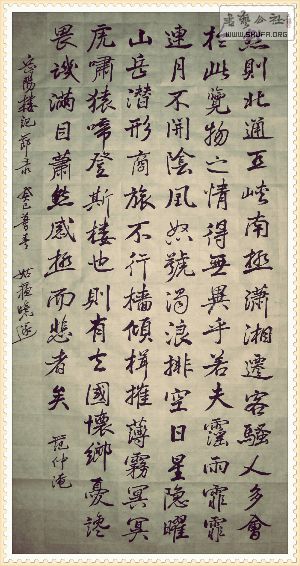 書藝公社
WWW.SHUFA.ORG
然則北通巫峽南極瀟湘遷客騷人多會
於此覽物之情得無異乎若夫霪雨霏霏
連月不開陰風怒號濁浪排空日星隱曜
山岳潛形商旅不行檣傾楫摧薄霧冥冥
虎嘯猿啼登斯樓也則有去國懷鄉憂讒
畏譏滿目蕭然感極而悲者矣 范仲淹
岳陽樓記節录 癸巳暮春